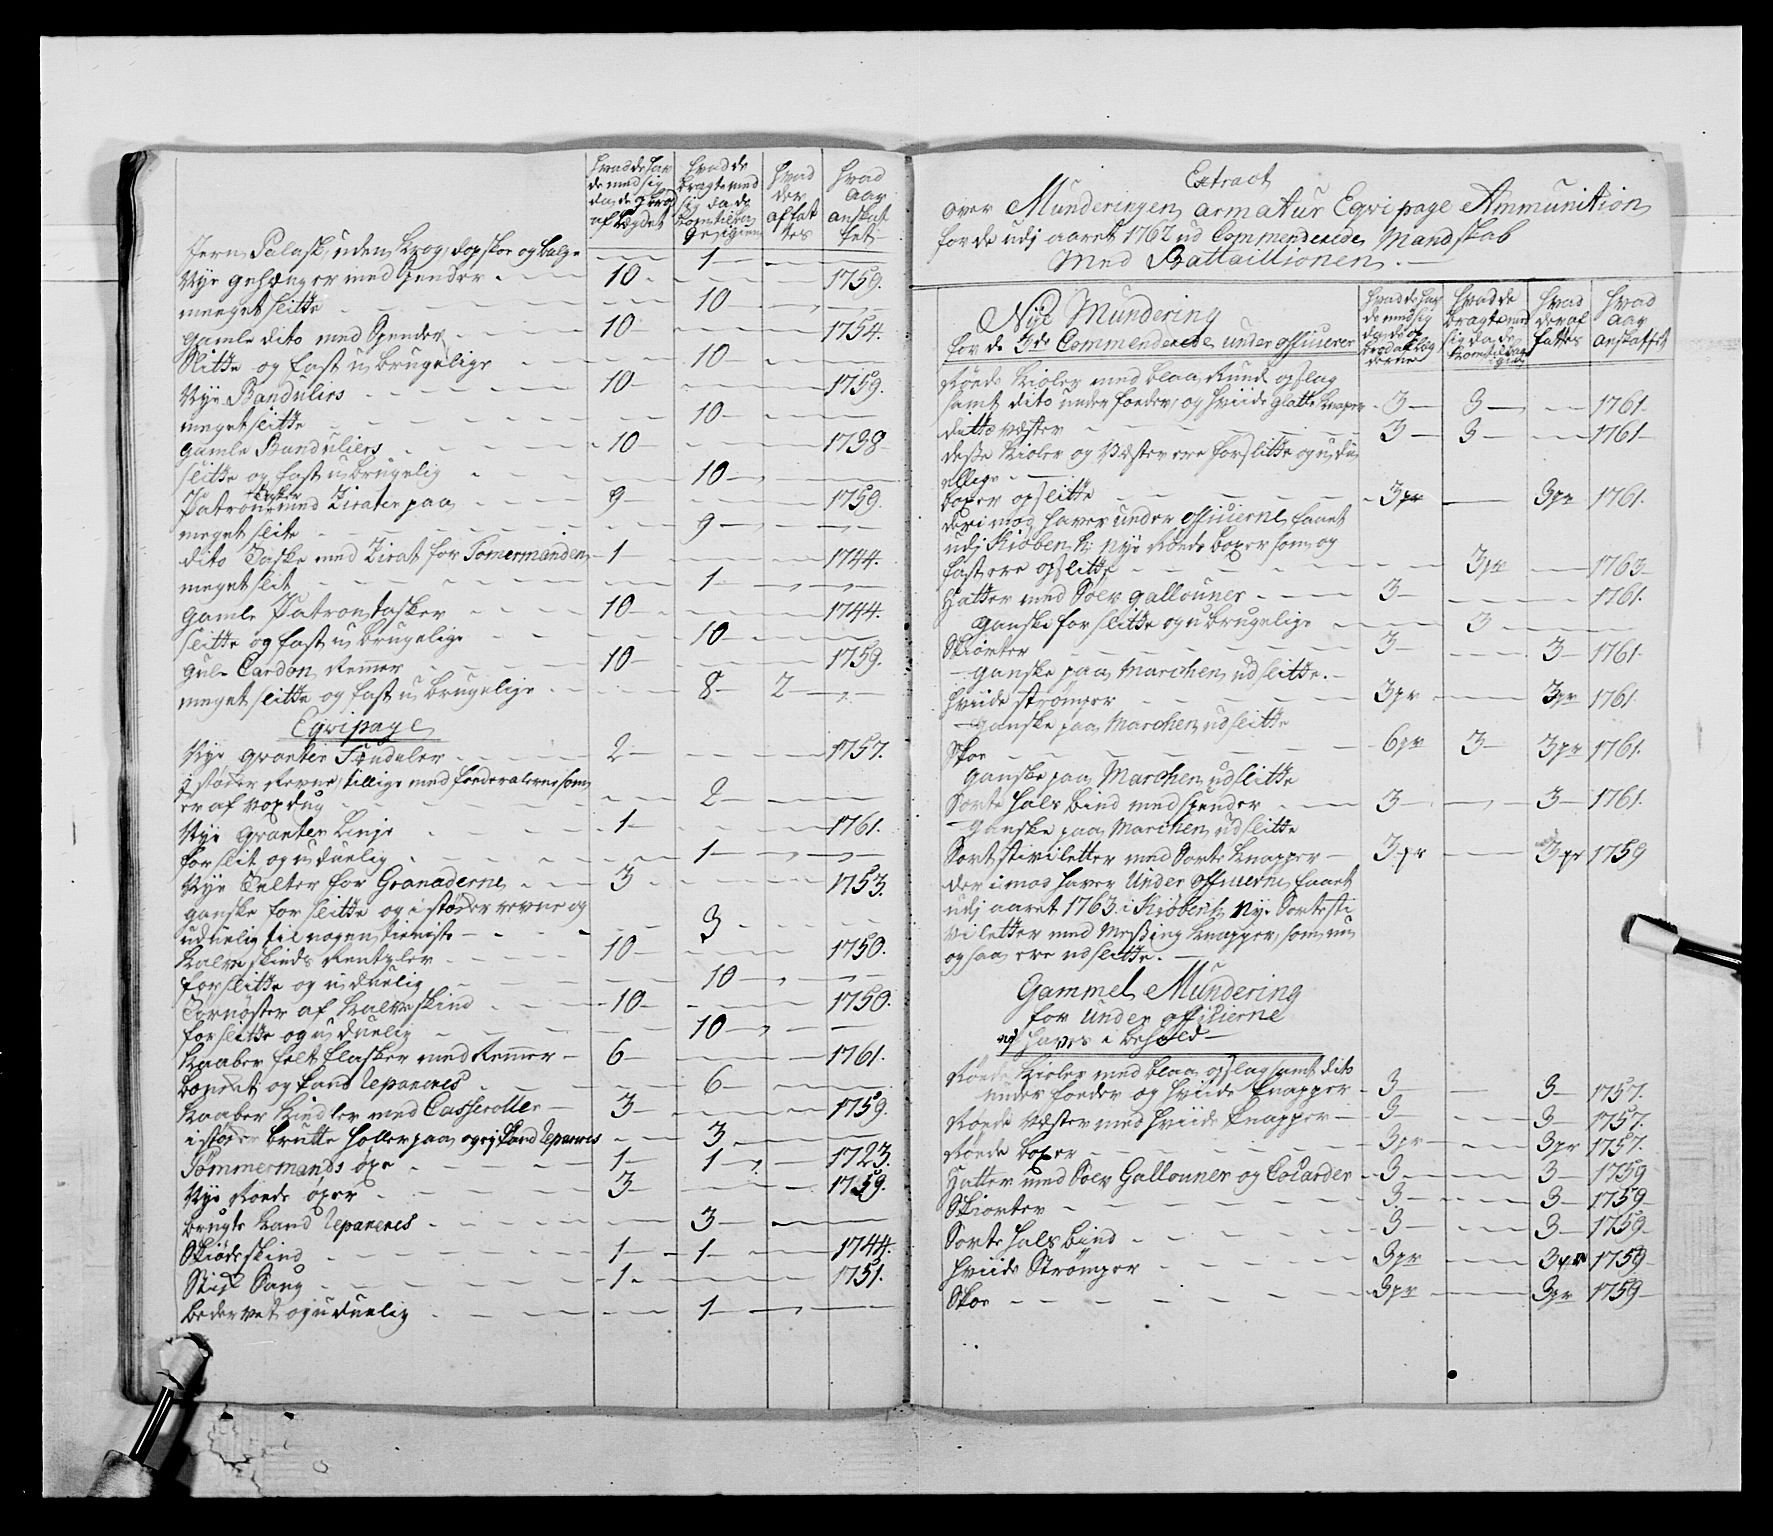 hvad de har
de med sig
da de
hvad de
bragte med
sig da de
kom tilba
ge igien
hvad
der
af fat
tes
hvad
aar
anskaf
fet
Jern Palask, uden krog, dopskoe og balge — 1 —
Nye gehænger med Spender — 10 — 1759.
meeget slitte — 10 —
gamle dito med Spender — 10 — 1754.
Slitte og fast ubrugelige — 10 —
Nye Bandulirs — 10 — 1759.
meget slitte — 10 —
gamle Banduliers — 10 — 1738
slitte og fast ubrugelig — 10 —
Patron tasker med Zirater paa — 9 — 1759.
meget slite — 9 —
dito Taske med Zirat for Tømermanden — 1 — 1744.
meget slit — 1 —
gamle Patrontasker — 10 — 1744.
slitte og fast ubrugelige — 10 —
gule Cardon Remer — 10 — 1759.
meget slitte og fast ubrugelige — 8 — 2 —
Eqvipage
Nye granter — 2 — 1757.
i støcker Revne, tillige med foederalerne som
er af voxdug — 2 —
Nye granter Linje — 1 — 1761.
forslit og uduelig — 1 —
Nye Telter for Granaderne — 3 — 1753.
ganske forslitte og i støcker revne og
uduelig til nogen tieniste — 3 —
Kalveskinds Rentzler — 10 — 1750.
forslitte og uduelig — 10 —
Tornøster af Kalveskind — 10 — 1750.
forslitte og uduelig — 10 —
Kaaber felt flasker med Remer — 6 — 1761.
og kand repareres — 6 —
Kaaber Kiedler med Casseroller — 3 — 1759.
i støcker brutte Holler paa og ej kand repareres — 3 —
Tømmermands øxe — 1 — 1 — 1723.
Nye Røede øxer — 3 — 1759.
brugte kand repareres — 3 —
Skiødeskind — 1 — 1 — 1744.
Stik Saug — 1 — 1751.
bedervet og uduelig — 1 —
Extract
over Munderingen armatur Eqvipage Ammunition
for de udj aaret 1762 ud Commenderede Mandskab
Med Battaillionen.
Nye Mundering
for de 3de Commenderede under officierer
hvad de har
de med sig
da de
hvad de
bragte med
sig da de
hvad
der af
fattes
hvad
aar
anskaffet
Røede Kioler med blaa Rund opslag
samt dito underfoeder, og hviide glatte knaper — 3 — 3 — 1761.
ditto væster — 3 — 3 — 1761
desse Kioler og Væster ere forslitte og udu
ellige
boxer opslitte — 3pr — 3pr 1761.
derimod haver under officierne faaet
udj Kiøbenh: nye Røede boxer som og
fast ere opslitte — 3pr — 1763
Hatter med Søev gallouner — 3 — 1761.
ganske forslitte og ubrugelige — 3 —
Skiorter — 3 — 3 — 1761.
ganske paa Marchen udslitte.
hviide strømper — 3pr — 3pr 1761.
ganske paa Marchen udslitte
Skoe — 6pr 3 — 3pr 1761.
ganske paa Marchen udslitte
Sorte Halsbind med spender — 3 — 3 — 1761.
ganske paa Marchen udslitte
Sort stiviletter med Sorte knapper — 3pr — 3pr 1759
derimod haver Under officierne faaet
udj aaret 1763 i Kiøbenh nye Sorte sti
viletter med Messing knapper, som nu
ogsaa ere udslitte.
Gammel Mundering
for under officierne
haves i behold
Røede Kioler med blaa opslag samt dito
under foeder og hviide knapper — 3 — 3 — 1757.
Røede væster med hviide knapper — 3 — 3 — 1757.
Røede boxer — 3pr — 3pr 1757.
Hatter med Søev Gallouner og Cocarder — 3 — 3 — 1759
Skiorter — 3 — 3 — 1759
Sorte Halsbind — 3 — 3 — 1759.
hviide Strømper — 3pr — 3pr 1759
Skoe — 3pr — 3pr 1759